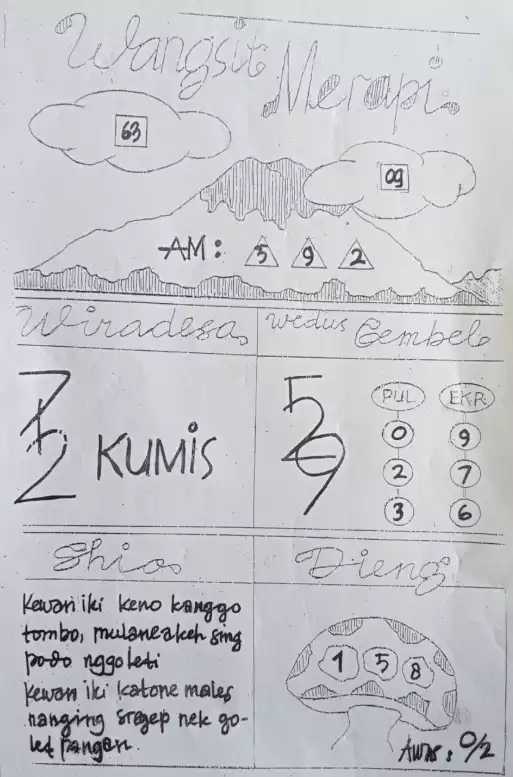 Wangsit
Merapi
63
09
AM: 5 9 2
Wiradesa
KUMIS
Wedus Gembel
PUL EKR
0 9
2 7
3 6
Shio
Kewan iki keno kanggo
tombo, mulane akeh sing
podo nggoleti
Kewan iki katone males
nanging sregep nek go-
let pangan.
Dieng
1 5 8
AWAS: 0/2